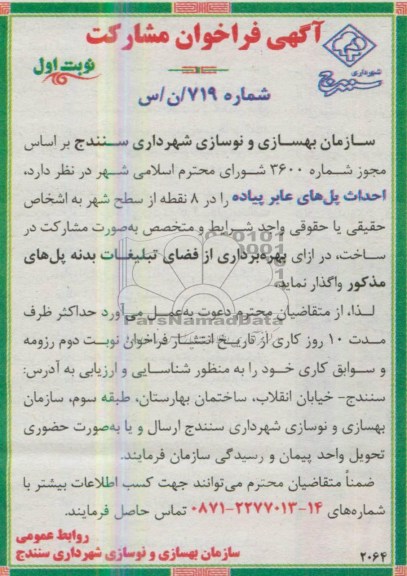 آگهی فراخوان مشارکت
شهرداری سنندج
نوبت اول
شماره ۷۱۹/ن/س
سازمان بهسازی و نوسازی شهرداری سنندج بر اساس
مجوز شماره ۳۶۰۰ شورای محترم اسلامی شهر در نظر دارد،
احداث پل‌های عابر پیاده را در ۸ نقطه از سطح شهر به اشخاص
حقیقی یا حقوقی واجد شرایط و متخصص به‌صورت مشارکت در
ساخت، در ازای بهره‌برداری از فضای تبلیغات بدنه پل‌های
مذکور واگذار نماید.
ParsNamadData
لذا، از متقاضیان محترم دعوت به‌عمل می‌آورد حداکثر ظرف
مدت ۱۰ روز کاری از تاریخ انتشار فراخوان نوبت دوم رزومه
و سوابق کاری خود را به منظور شناسایی و ارزیابی به آدرس:
سنندج- خیابان انقلاب، ساختمان بهارستان، طبقه سوم، سازمان
بهسازی و نوسازی شهرداری سنندج ارسال و یا به‌صورت حضوری
تحویل واحد پیمان و رسیدگی سازمان فرمایند.
ضمناً متقاضیان محترم می‌توانند جهت کسب اطلاعات بیشتر با
شماره‌های ۱۴-۲۲۷۷۰۱۳-۰۸۷۱ تماس حاصل فرمایند.
روابط عمومی
سازمان بهسازی و نوسازی شهرداری سنندج
۲۰۶۴